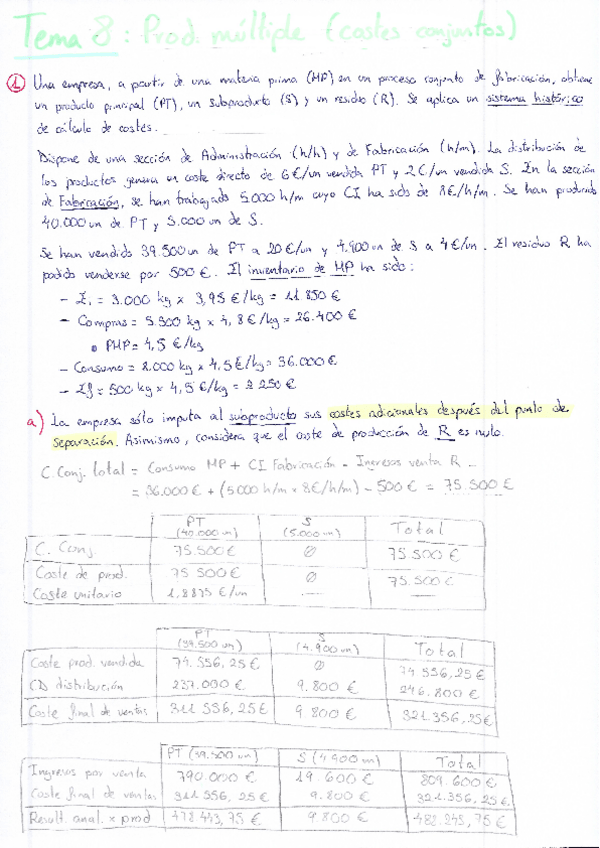 Tema 8: Prod. múltiple (costes conjuntos)
① Una empresa, a partir de una materia prima (MP) en un proceso conjunto de fabricación, obtiene
un producto principal (PT), un subproducto (S) y un residuo (R). Se aplica un sistema histórico
de cálculo de costes.
Dispone de una sección de Administración (h/h) y de Fabricación (h/m). La distribución de
los productos genera un coste directo de 6€/un vendida PT y 2€/un vendida S. En la sección
de Fabricación, se han trabajado 5.000 h/m cuyo CI ha sido de 8€/h/m. Se han producido
40.000 un de PT y 5.000 un de S.
Se han vendido 39.500 un de PT a 20€/un y 4.900 un de S a 4€/un. El residuo R ha
podido venderse por 500€. El inventario de MP ha sido:
- Ei = 3.000 kg x 3,95€/kg = 11.850€
- Compras = 5.500 kg x 4,8€/kg = 26.400€
PMP = 4,5€/kg
- Consumo = 8.000 kg x 4,5€/kg = 36.000€
- Ef = 500 kg x 4,5€/kg = 2.250€
a) La empresa sólo imputa al subproducto sus costes adicionales después del punto de
separación. Asimismo, considera que el coste de producción de R es nulo.
C. Conj. total = Consumo MP + CI Fabricación - Ingresos venta R
= 36.000€ + (5.000 h/m x 8€/h/m) - 500€ = 75.500€
PT (40.000 un) S (5.000 un) Total
C. Conj. 75.500€ ∅ 75.500€
Coste de prod. 75.500€ ∅ 75.500€
Coste unitario 1,8875€/un
PT (39.500 un) S (4.900 un) Total
Coste prod. vendida 74.556,25€ ∅ 74.556,25€
CD distribución 237.000€ 9.800€ 246.800€
Coste final de ventas 311.556,25€ 9.800€ 321.356,25€
PT (39.500 un) S (4.900 un) Total
Ingresos por venta 790.000€ 19.600€ 809.600€
Coste final de ventas 311.556,25€ 9.800€ 321.356,25€
Result. anal. x prod 478.443,75€ 9.800€ 488.243,75€